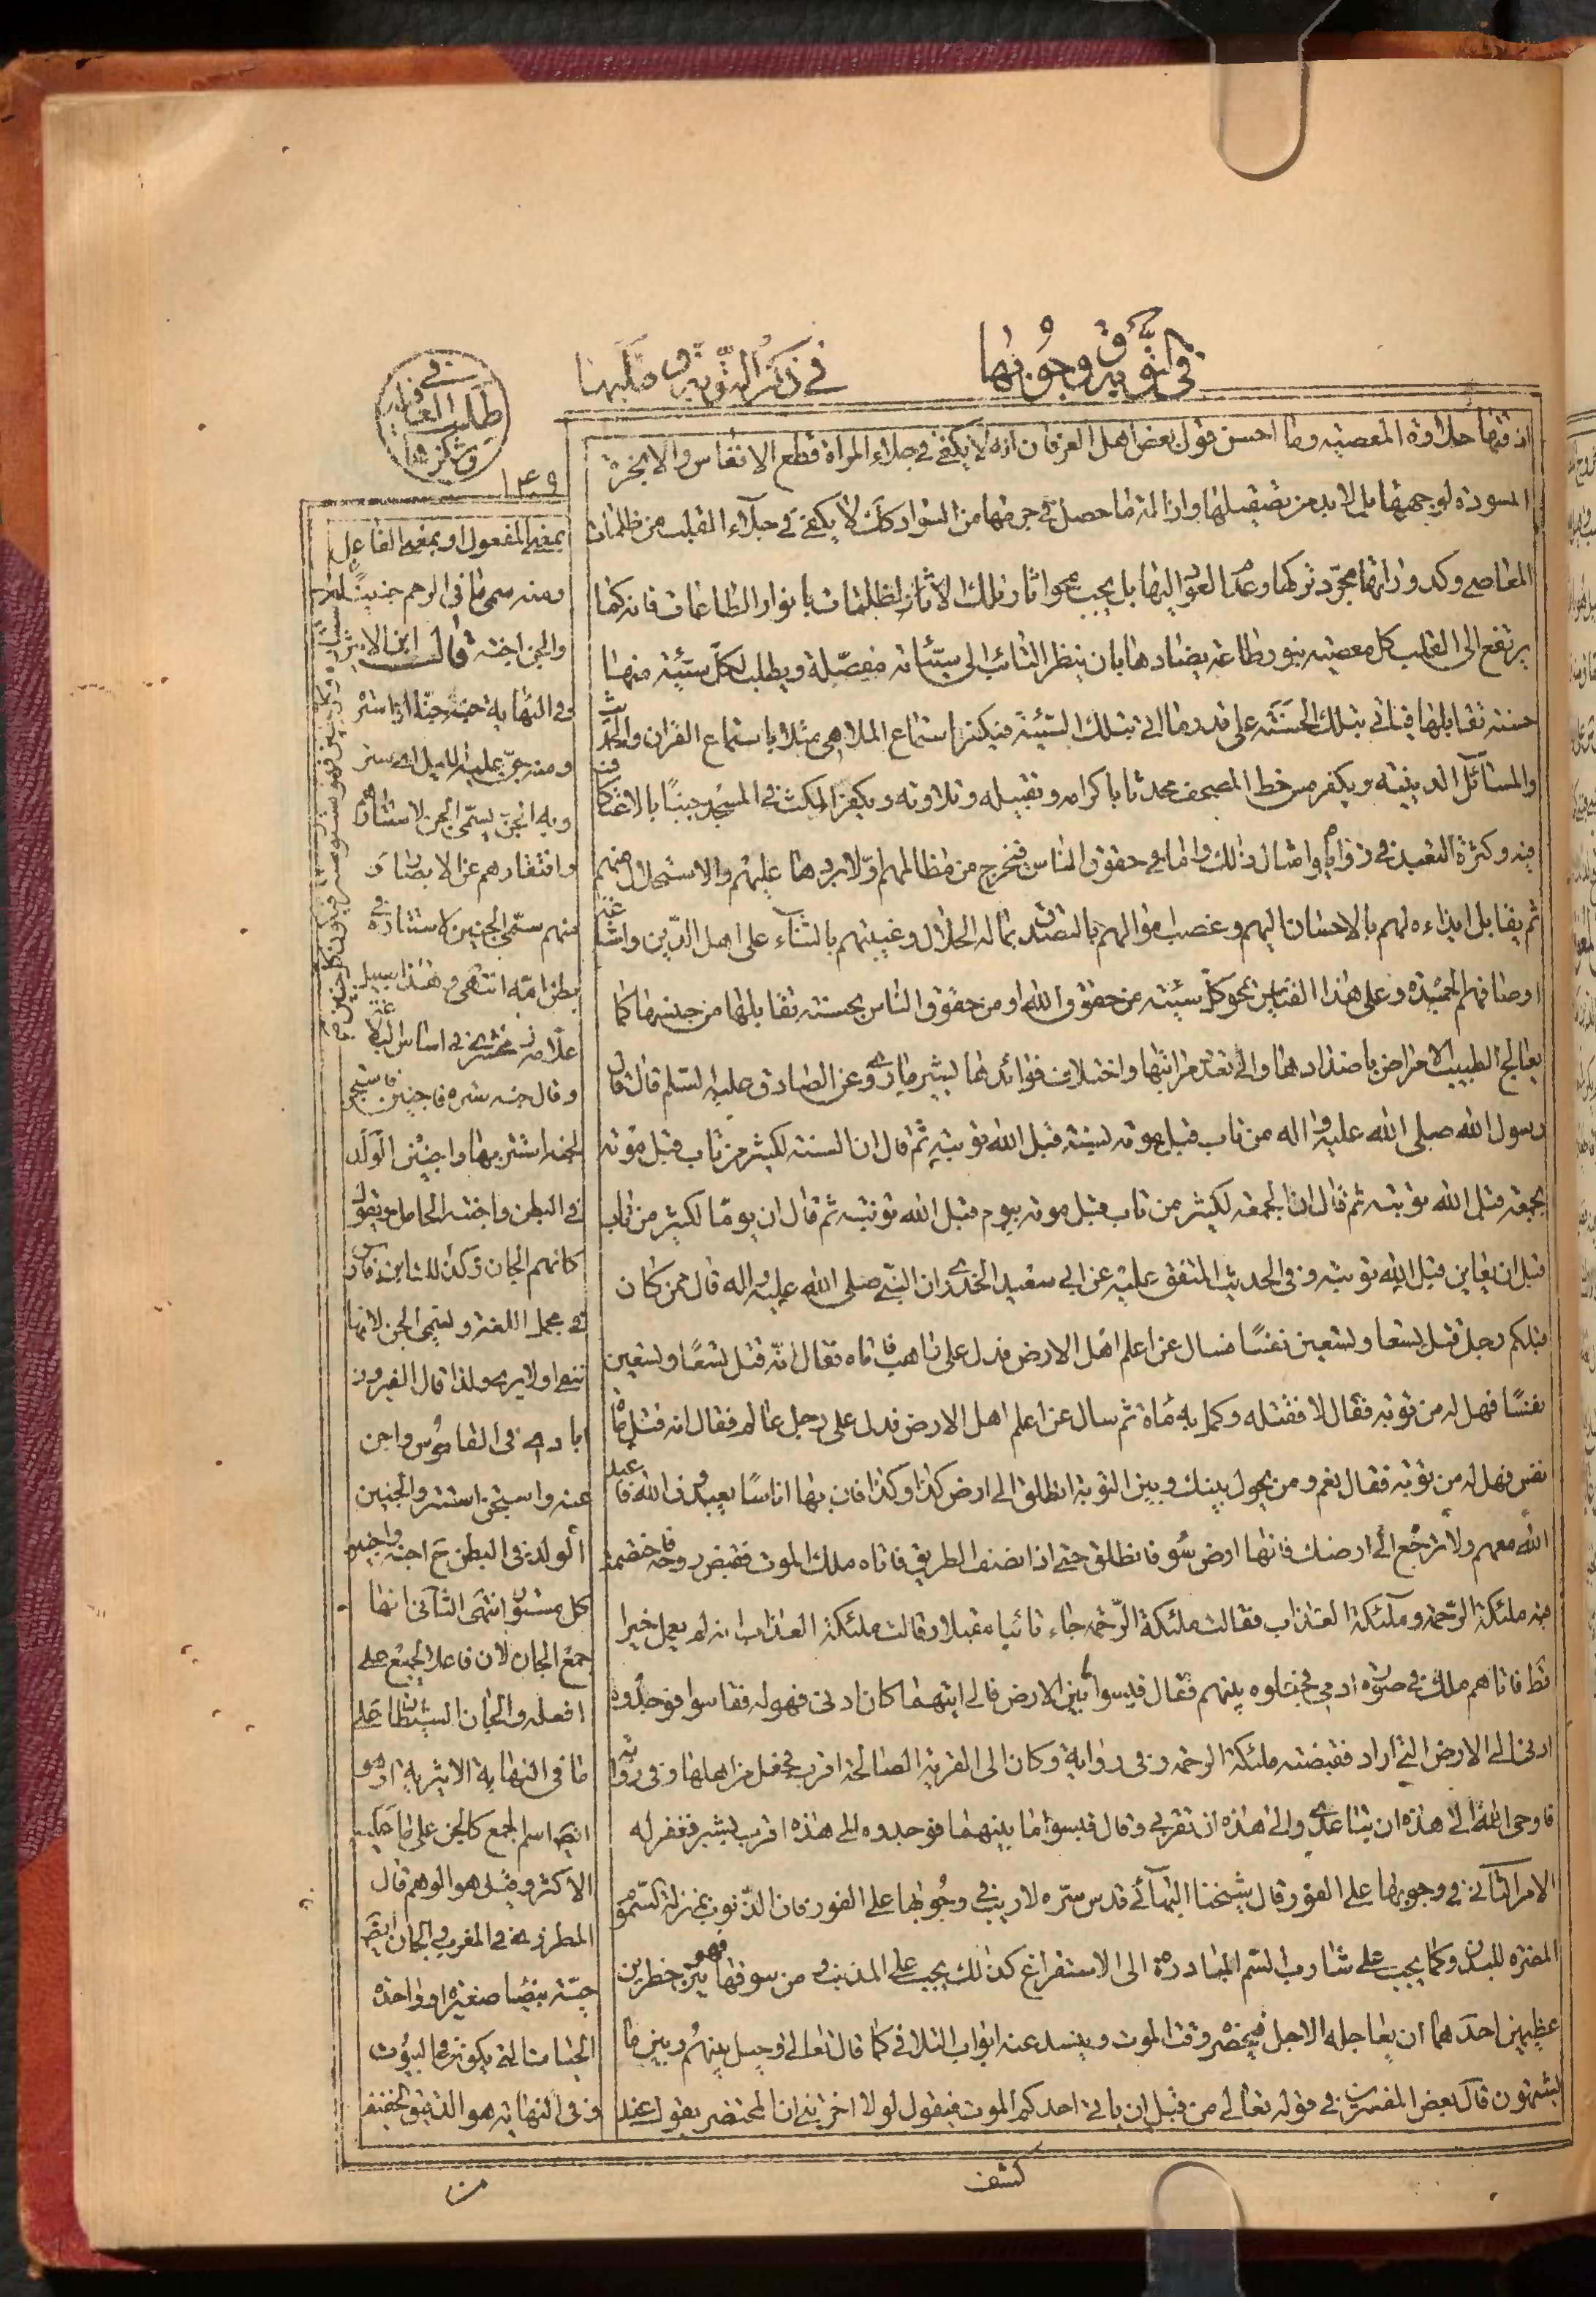 في التوبة و وجوبها
في ذكر التوبة و طلبها
في طلب العفو و شكرها
١٤٩
اذقتها حلاوة المعصية وما احسن قول بعض اهل العرفان انه لا يكفى في جلاء المراة قطع الانفاس والابخرة
المسودة لوجهها بل لا بد من تصقيلها وازالة ما حصل في جرمها من السواد كذلك لا يكفى في جلاء القلب من ظلمات
المعاصي وكدوراتها مجرد تركها وعدم العود اليها بل يجب محو اثار تلك الاثار الظلمات بانوار الطاعات فانه كما
يرتفع الى القلب كل معصية بنور طاعة يضادها بان ينظر التائب الى سيئاته مفصلة ويطلب لكل سيئة منها
حسنة تقابلها فياتي بتلك الحسنة على قدر ما اتى بتلك السيئة فيكفر استماع الملاهي مثلا باستماع القران والحديث
والمسائل الدينية ويكفر مس خط المصحف محدثا باكرامه وتقبيله وتلاوته ويكفر المكث في المسجد جنبا بالاعتكاف
فيه وكثرة التعبد في زواياه وامثال ذلك واما في حقوق الناس فيخرج من مظالمهم اولا بردها عليهم والاستحلال منهم
ثم يقابل ايذاءه لهم بالاحسان اليهم وغصب اموالهم بالتصدق بماله الحلال وغيبتهم بالثناء على اهل الدين واشاعة
اوصافهم الحميدة وعلى هذا القياس يمحو كل سيئة من حقوق الله او من حقوق الناس بحسنة تقابلها من جنسها كما
يعالج الطبيب الامراض باضدادها والى تعدد مراتبها واختلاف فوائدها يشير ما روى عن الصادق عليه السلم قال قال
رسول الله صلى الله عليه واله من تاب قبل موته بسنة قبل الله توبته ثم قال ان السنة لكثير من تاب قبل موته
بجمعة قبل الله توبته ثم قال ان الجمعة لكثير من تاب قبل موته بيوم قبل الله توبته ثم قال ان يوما لكثير من تاب
قبل ان يعاين قبل الله توبته وفي الحديث المتفق عليه عن ابي سعيد الخدرى ان النبي صلى الله عليه واله قال من كان
قبلكم رجل قتل تسعا وتسعين نفسا فسال عن اعلم اهل الارض فدل على راهب فاتاه فقال انه قتل تسعا وتسعين
نفسا فهل له من توبة فقال لا فقتله وكمل به مأة ثم سال عن اعلم اهل الارض فدل على رجل عالم فقال انه قتل مأة
نفس فهل له من توبة فقال نعم ومن يحول بينك وبين التوبة انطلق الى ارض كذا وكذا فان بها اناسا يعبدون الله فاعبد
الله معهم ولا ترجع الى ارضك فانها ارض سوء فانطلق حتى اذا نصف الطريق فاتاه ملك الموت فقبض روحه فاختصمت
فيه ملئكة الرحمة وملئكة العذاب فقالت ملئكة الرحمة جاء تائبا مقبلا وقالت ملئكة العذاب انه لم يعمل خيرا
قط فاتاهم ملك في صورة ادمي فجعلوه بينهم فقال قيسوا ما بين الارض فالى ايتهما كان ادنى فهو له فقاسوا فوجدوه
ادنى الى الارض التي اراد فقبضته ملئكة الرحمة وفي رواية وكان الى القرية الصالحة اقرب فجعل من اهلها وفي رواية
فاوحى الله الى هذه ان تباعدى والى هذه ان تقربي وقال قيسوا ما بينهما فوجدوه الى هذه اقرب بشبر فغفر له
الامر الثاني في وجوبها على الفور قال شيخنا البهائي قدس سره لا ريب في وجوبها على الفور فان الذنوب بمنزلة السموم
المضرة للبدن وكما يجب على شارب السم المبادرة الى الاستفراغ كذلك يجب على المذنب ومن سوفها فهو بين خطرين
عظيمين احدهما ان يعاجله الاجل فيحضر وقت الموت وينسد عنه ابواب التلافى كما قال تعالى وحيل بينهم وبين ما
يشتهون قال بعض المفسرين في قوله تعالى من قبل ان ياتي احدكم الموت فيقول لولا اخرتني ان المحتضر يقول عند
كشف
بمعنى المفعول او بمعنى الفاعل
ومنه سمى ما في الرحم جنينا
والجن اجنة قال ابن الاثير
في النهاية جنه جنا اذا ستره
ومنه جن عليه الليل اى ستر
وبه الجن يسمى الجن لاستتارهم
واختفائهم عن الابصار و
منهم سمى الجنين لاستتاره في
بطن امه انتهى وهذا سبيل
علامة زمخشرى في اساس البلاغة
وقال جنه ستره فاجتن واستجن
بجنة استتر بها واجتن الولد
في البطن واجنته الحامل ويقول
كانهم الجان وكذلك ابن فارس
في مجمل اللغة وتسمى الجن لانها
تتقى ولا يرى ولذا قال الفيروز
ابادى في القاموس واجن
عنه واستجن استتر والجنين
الولد في البطن ج اجنة واجنن
كل مستور انتهى الثاني انها
جمع الجان لان فاعلا يجمع على
افعله والجان الشيطان على
ما في النهاية الاثرية او هو
ايض اسم لجمع كالجن على ما حكى
الاكثر وقيل هو الوهم قال
المطرزى في المغرب والجان ايض
حية بيضا صغيرة او واحدة
الجنان التي يكون في البيوت
وفي النهاية هو الدقيق الخفيف
من